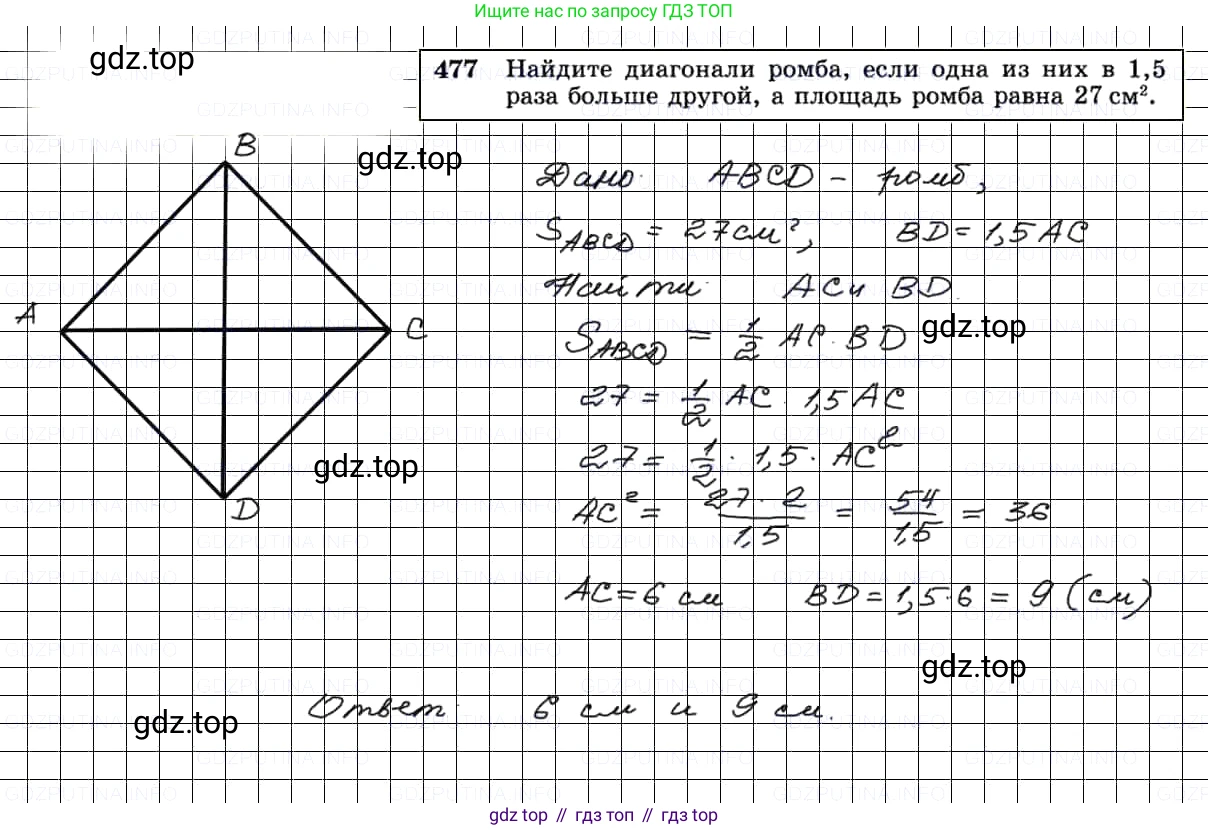 Ищите нас по запросу ГДЗ ТОП
gdz.top
477 Найдите диагонали ромба, если одна из них в 1,5
раза больше другой, а площадь ромба равна 27 см².
B
gdz.top
Дано: ABCD - ромб,
S_ABCD = 27 см², BD = 1,5 AC
Найти: AC и BD.
A
C
S_ABCD = 1/2 AC · BD
gdz.top
27 = 1/2 AC · 1,5 AC
27 = 1/2 · 1,5 · AC²
gdz.top
D
AC² = 27 · 2 / 1,5 = 54 / 1,5 = 36
AC = 6 см BD = 1,5 · 6 = 9 (см)
gdz.top
Ответ: 6 см и 9 см.
gdz.top
gdz top // гдз топ // гдз top